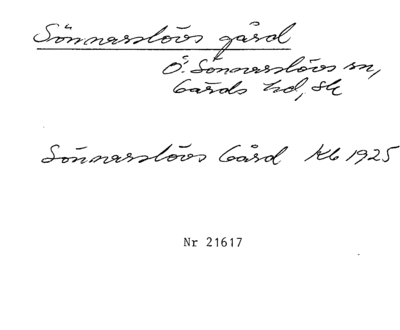 Sönnarslövs gård
Ö. Sönnarslövs sn,
Gärds hd, Sk
Sönnarslövs Gård Kb 1925
Nr 21617